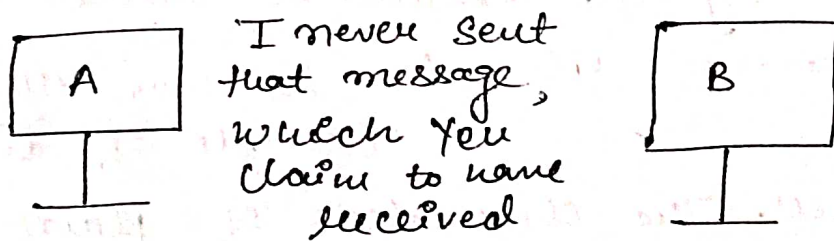 A
I never sent
that message,
which you
claim to have
received
B